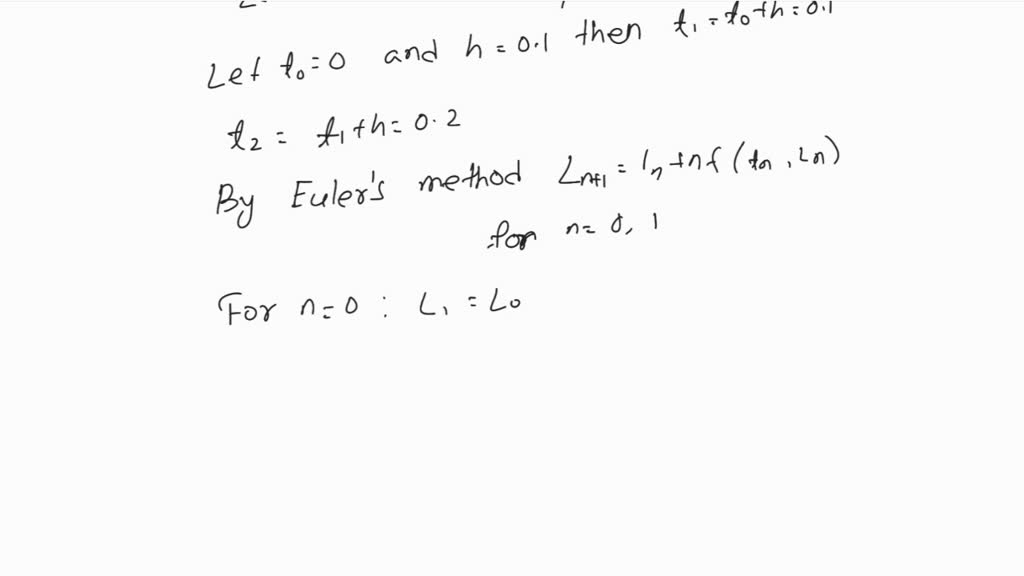 Let t₀ = 0 and h = 0.1 then t₁ = t₀ + h = 0.1
t₂ = t₁ + h = 0.2
By Euler's method Lₙ₊₁ = lₙ + n f (tₙ, Lₙ)
for n = 0, 1
For n = 0 : L₁ = L₀